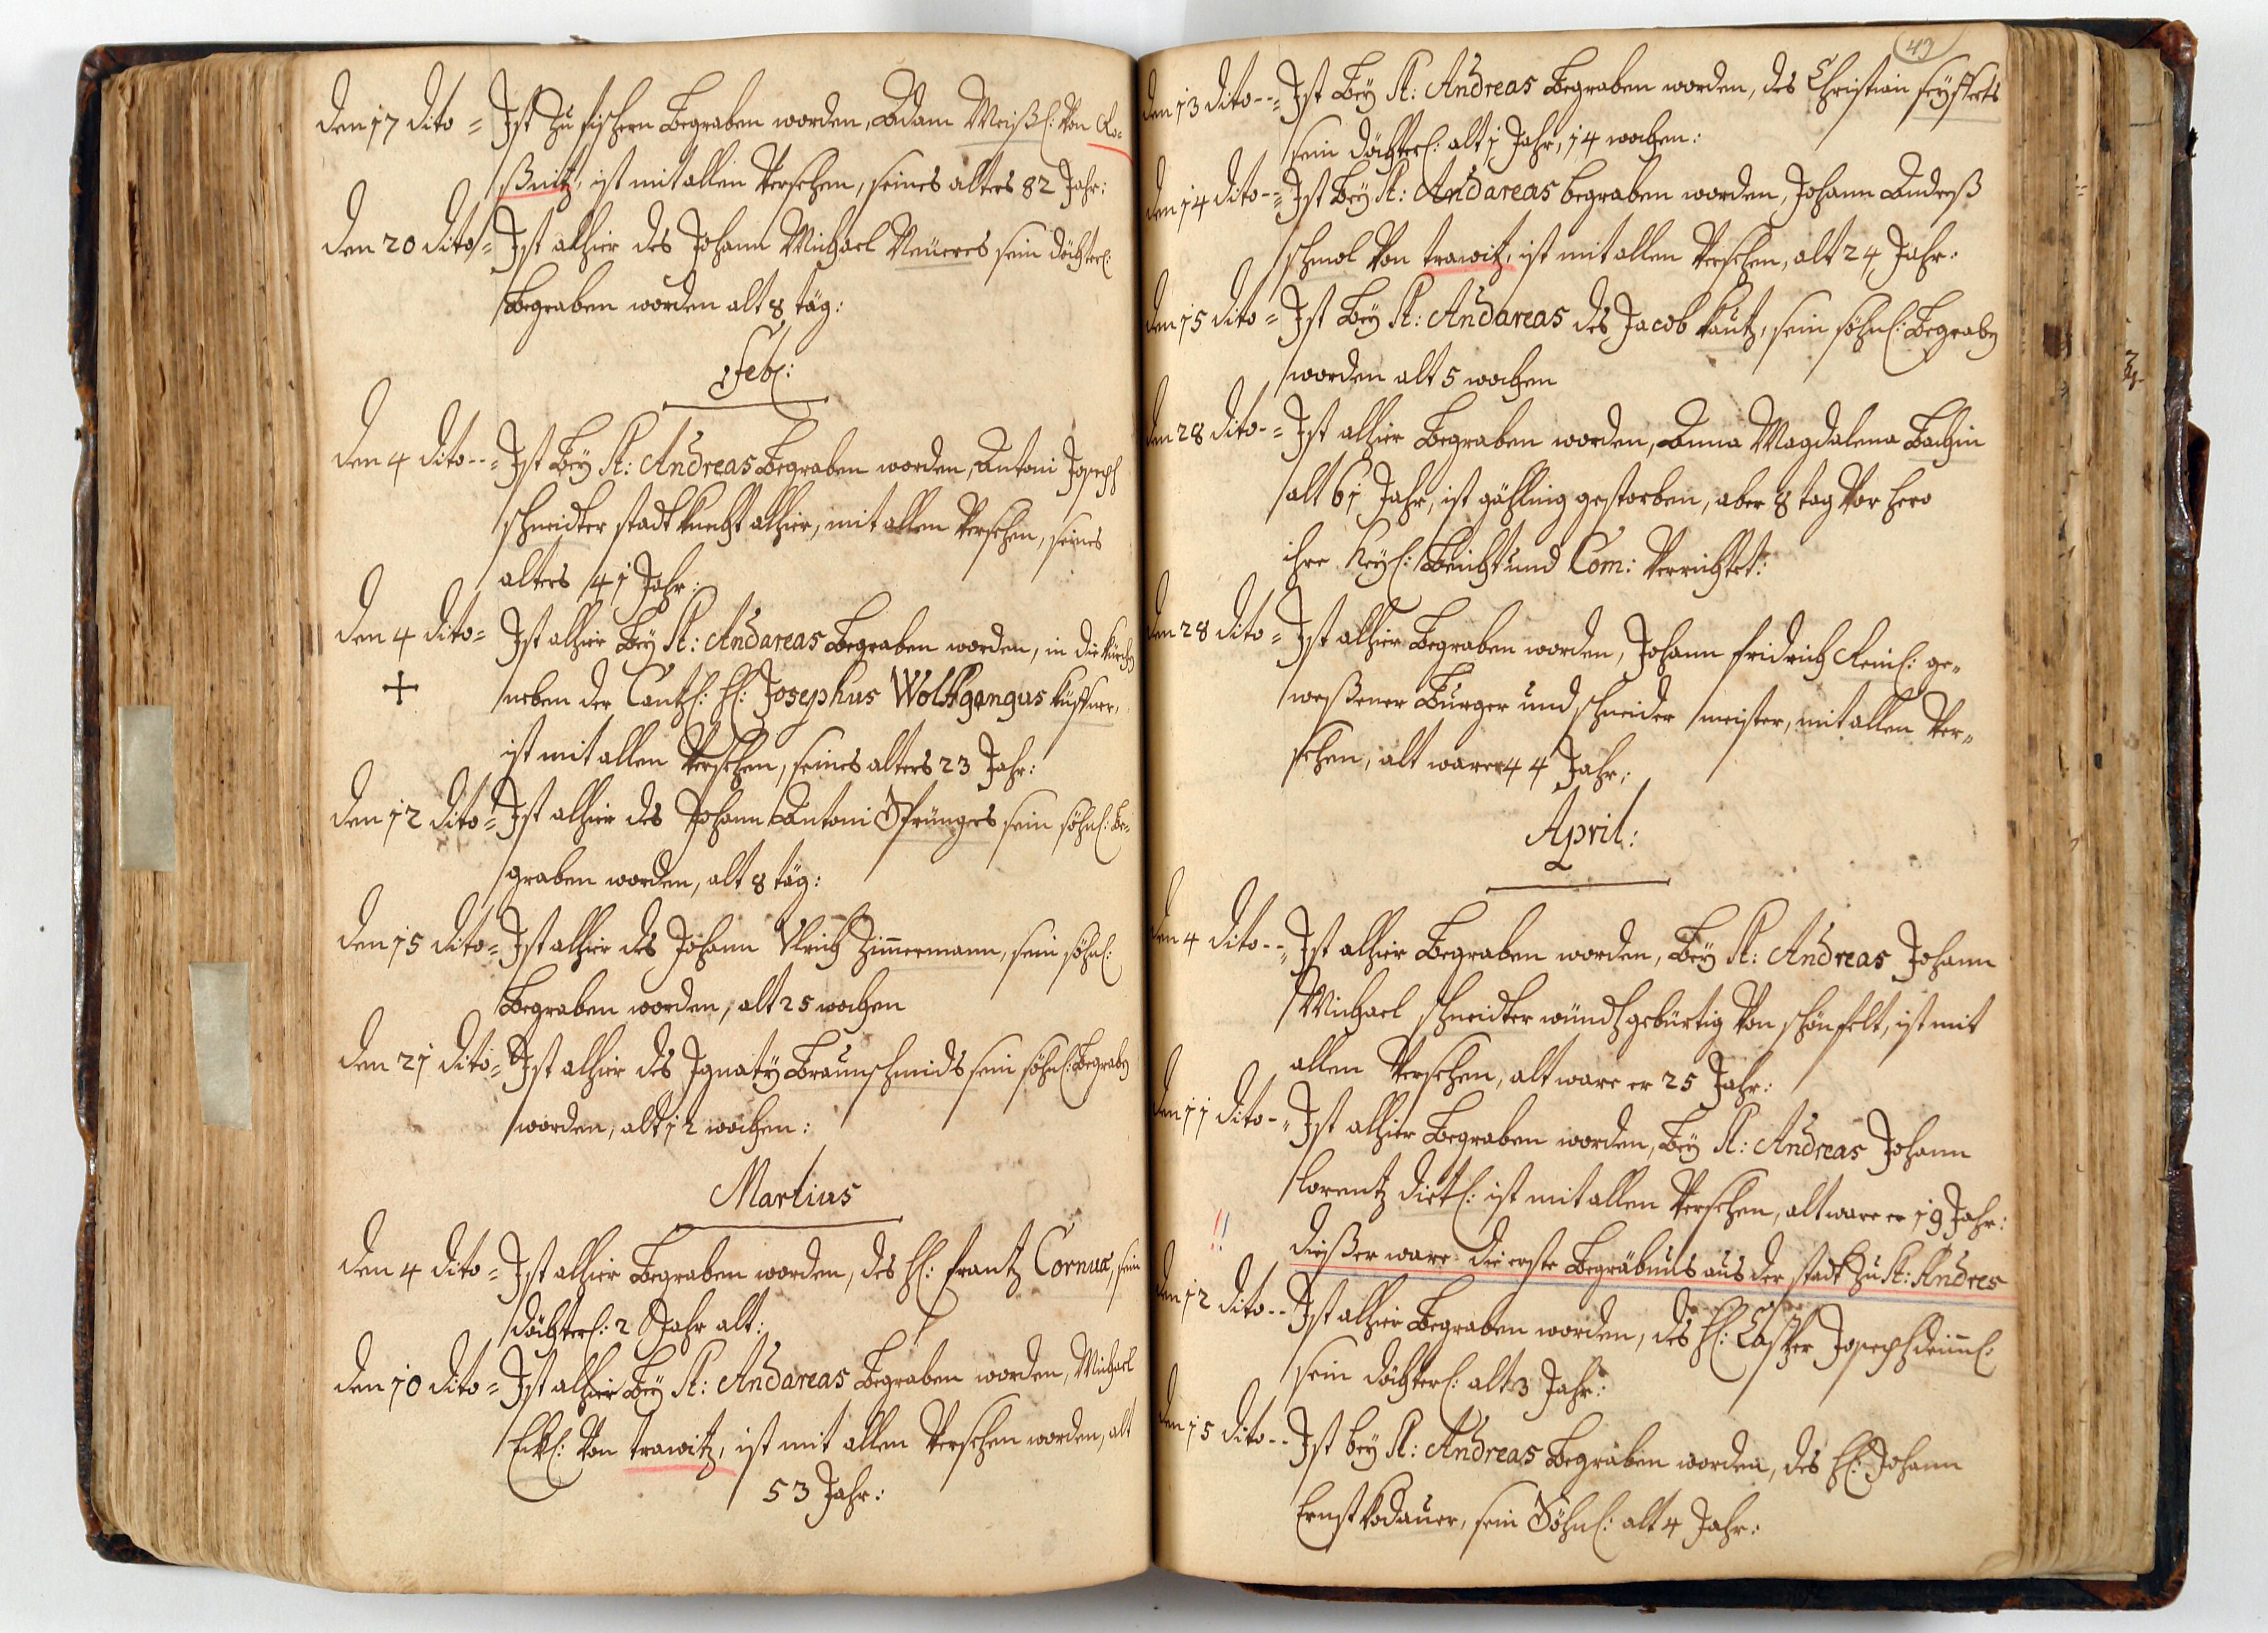 den 17 dito = Ist zu fischern Begraben worden, Adam Meißl: von Ro-
ßnitz, ist mit allen Versehen, seines alters 82 Jahr:
den 20 dito = Ist alhier des Johann Michael Neüeres sein döchterl:
Begraben worden alt 8 täg:
Feb:
den 4 dito -- = Ist Bey St: Andreas Begraben worden, Antoni Joseph
schneidter stadt knecht alhier, mit allen Versehen, seines
alters 41 Jahr:
den 4 dito = Ist alhier Bey St: Andareas Begraben worden, in die kürchen
+ neben der Cantzl: H: Josephus Wolfgangus küffner,
ist mit allen Versehen, seines alters 23 Jahr:
den 12 dito = Ist alhier des Johann Antoni Sprüngers sein söhnl: Be-
graben worden, alt 8 täg:
den 15 dito = Ist alhier des Johann Ulrich Zimmermann, sein söhnl:
Begraben worden, alt 25 wochen
den 21 dito = Ist alhier des Ignaty Braunschmids sein söhnl: Begraben
worden, alt 12 wochen:
Martius
den 4 dito = Ist alhier Begraben worden, des H: Frantz Cornua, sein
döchterl: 2 Jahr alt:
den 10 dito = Ist alhier Bey St: Andareas Begraben worden, Michael
Eckl: von trawitz, ist mit allen Versehen worden, alt
53 Jahr:
43
den 13 dito -- = Ist Bey St: Andreas Begraben worden, des Christian
sein döchterl: alt 1 Jahr, 14 wochen:
den 14 dito -- = Ist Bey St: Andareas begraben worden, Johann Andreß
schmol von trawitz, ist mit allen Versehen, alt 24 Jahr:
den 15 dito = Ist Bey St: Andareas des Jacob kautz, sein söhnl: Begraben
worden alt 5 wochen
den 28 dito - = Ist alhier Begraben worden, Anna Magdalena Bachin
alt 61 Jahr, ist gähling gestorben, aber 8 tag vor hero
ihre heyl: Beicht und Com: Verrichtet:
den 28 dito = Ist alhier Begraben worden, Johann fridrich Reinl: ge-
weßener Burger und schneider meister, mit allen Ver-
sehen, alt ware 44 Jahr:
April:
den 4 dito -- = Ist alhier Begraben worden, Bey St: Andreas Johann
Michael schneidter gebürtig von schönfelt, ist mit
allen Versehen, alt ware er 25 Jahr:
den 11 dito - = Ist alhier Begraben worden, Bey St: Andreas Johann
lorentz dietl: ist mit allen Versehen, alt ware er 19 Jahr:
!! dießer ware die erste Begräbnus aus der stadt zu St: Andres
den 12 dito -- Ist alhier Begraben worden, des H: Casper Joseph
sein döchterl: alt 3 Jahr:
den 15 dito -- Ist bey St: Andreas Begraben worden, des H: Johann
Ernst kodauer, sein Söhnl: alt 4 Jahr: